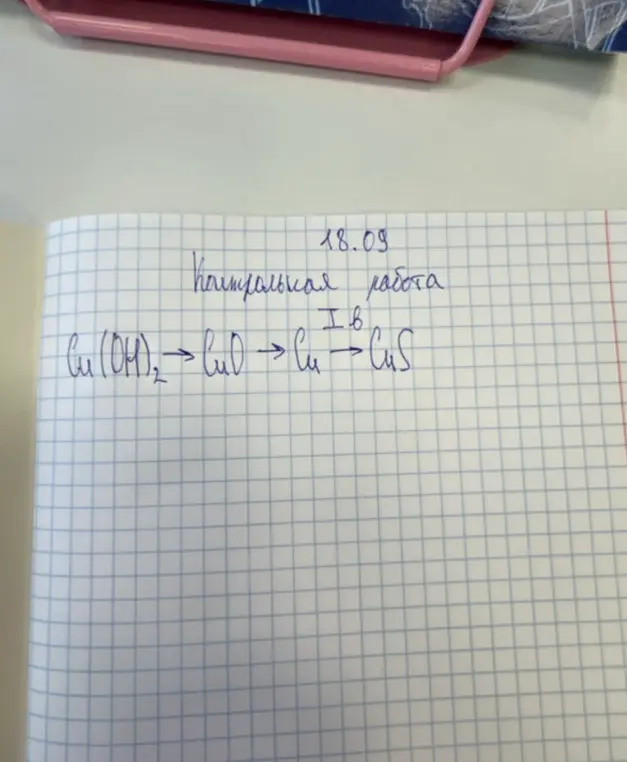 18.09
Контрольная работа
I в
Cu(OH)₂ → CuO → Cu → CuS